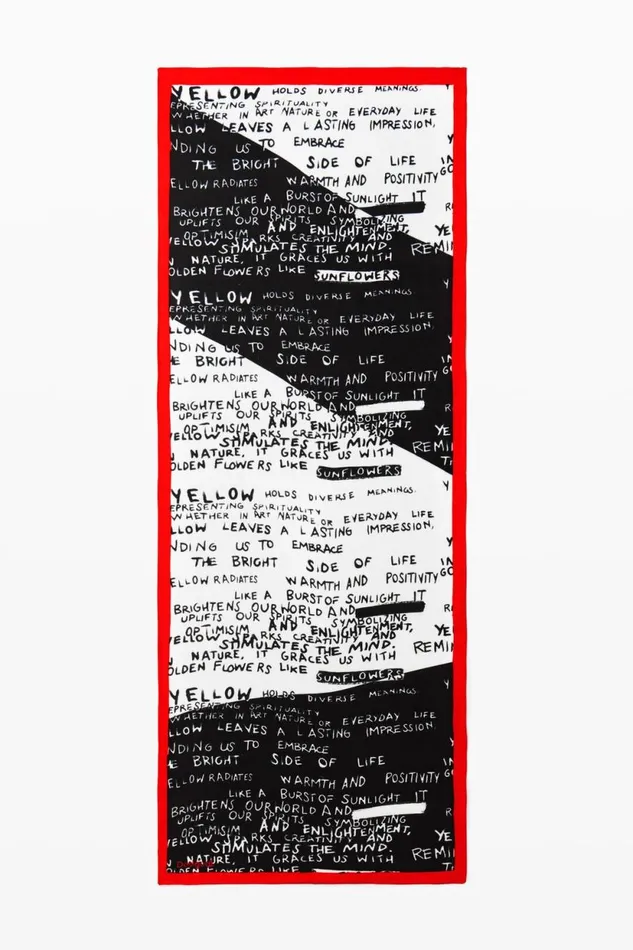 YELLOW HOLDS DIVERSE MEANINGS.
EPRESENTING SPIRITUALITY
WHETHER IN ART NATURE OR EVERYDAY LIFE
LLOW LEAVES A LASTING IMPRESSION, Y
NDING US TO EMBRACE
THE BRIGHT SIDE OF LIFE IN
ELLOW RADIATES WARMTH AND POSITIVITY GO
LIKE A BURST OF SUNLIGHT IT
BRIGHTENS OUR WORLD AND R
UPLIFTS OUR SPIRITS SYMBOLIZING
OPTIMISIM AND ENLIGHTENMENT, YE
YELLOW SPARKS CREATIVITY AND
STMULATES THE MIND. REMI
N NATURE, IT GRACES US WITH
OLDEN FLOWERS LIKE SUNFLOWERS
YELLOW HOLDS DIVERSE MEANINGS. Y
EPRESENTING SPIRITUALITY
WHETHER IN ART NATURE OR EVERYDAY LIFE
LLOW LEAVES A LASTING IMPRESSION, Y
NDING US TO EMBRACE
E BRIGHT SIDE OF LIFE IN
ELLOW RADIATES WARMTH AND POSITIVITY GO
LIKE A BURST OF SUNLIGHT IT
BRIGHTENS OUR WORLD AND R
UPLIFTS OUR SPIRITS SYMBOLIZING
OPTIMISIM AND ENLIGHTENMENT, YE
YELLOW SPARKS CREATIVITY AND
STMULATES THE MIND. REMI
N NATURE, IT GRACES US WITH
OLDEN FLOWERS LIKE SUNFLOWERS T
YELLOW HOLDS DIVERSE MEANINGS. Y
EPRESENTING SPIRITUALITY
WHETHER IN ART NATURE OR EVERYDAY LIFE
LLOW LEAVES A LASTING IMPRESSION, Y
NDING US TO EMBRACE
THE BRIGHT SIDE OF LIFE IN
ELLOW RADIATES WARMTH AND POSITIVITY GO
LIKE A BURST OF SUNLIGHT IT
BRIGHTENS OUR WORLD AND R
UPLIFTS OUR SPIRITS SYMBOLIZING
OPTIMISIM AND ENLIGHTENMENT, YE
YELLOW SPARKS CREATIVITY AND
STMULATES THE MIND. REMI
N NATURE, IT GRACES US WITH
OLDEN FLOWERS LIKE SUNFLOWERS
YELLOW HOLDS DIVERSE MEANINGS. Y
EPRESENTING SPIRITUALITY
WHETHER IN ART NATURE OR EVERYDAY LIFE
LLOW LEAVES A LASTING IMPRESSION, Y
NDING US TO EMBRACE
E BRIGHT SIDE OF LIFE IN
ELLOW RADIATES WARMTH AND POSITIVITY GO
LIKE A BURST OF SUNLIGHT IT
BRIGHTENS OUR WORLD AND R
UPLIFTS OUR SPIRITS SYMBOLIZING
OPTIMISIM AND ENLIGHTENMENT, YE
YELLOW SPARKS CREATIVITY AND
STMULATES THE MIND. REMI
N NATURE, IT GRACES US WITH
OLDEN FLOWERS LIKE